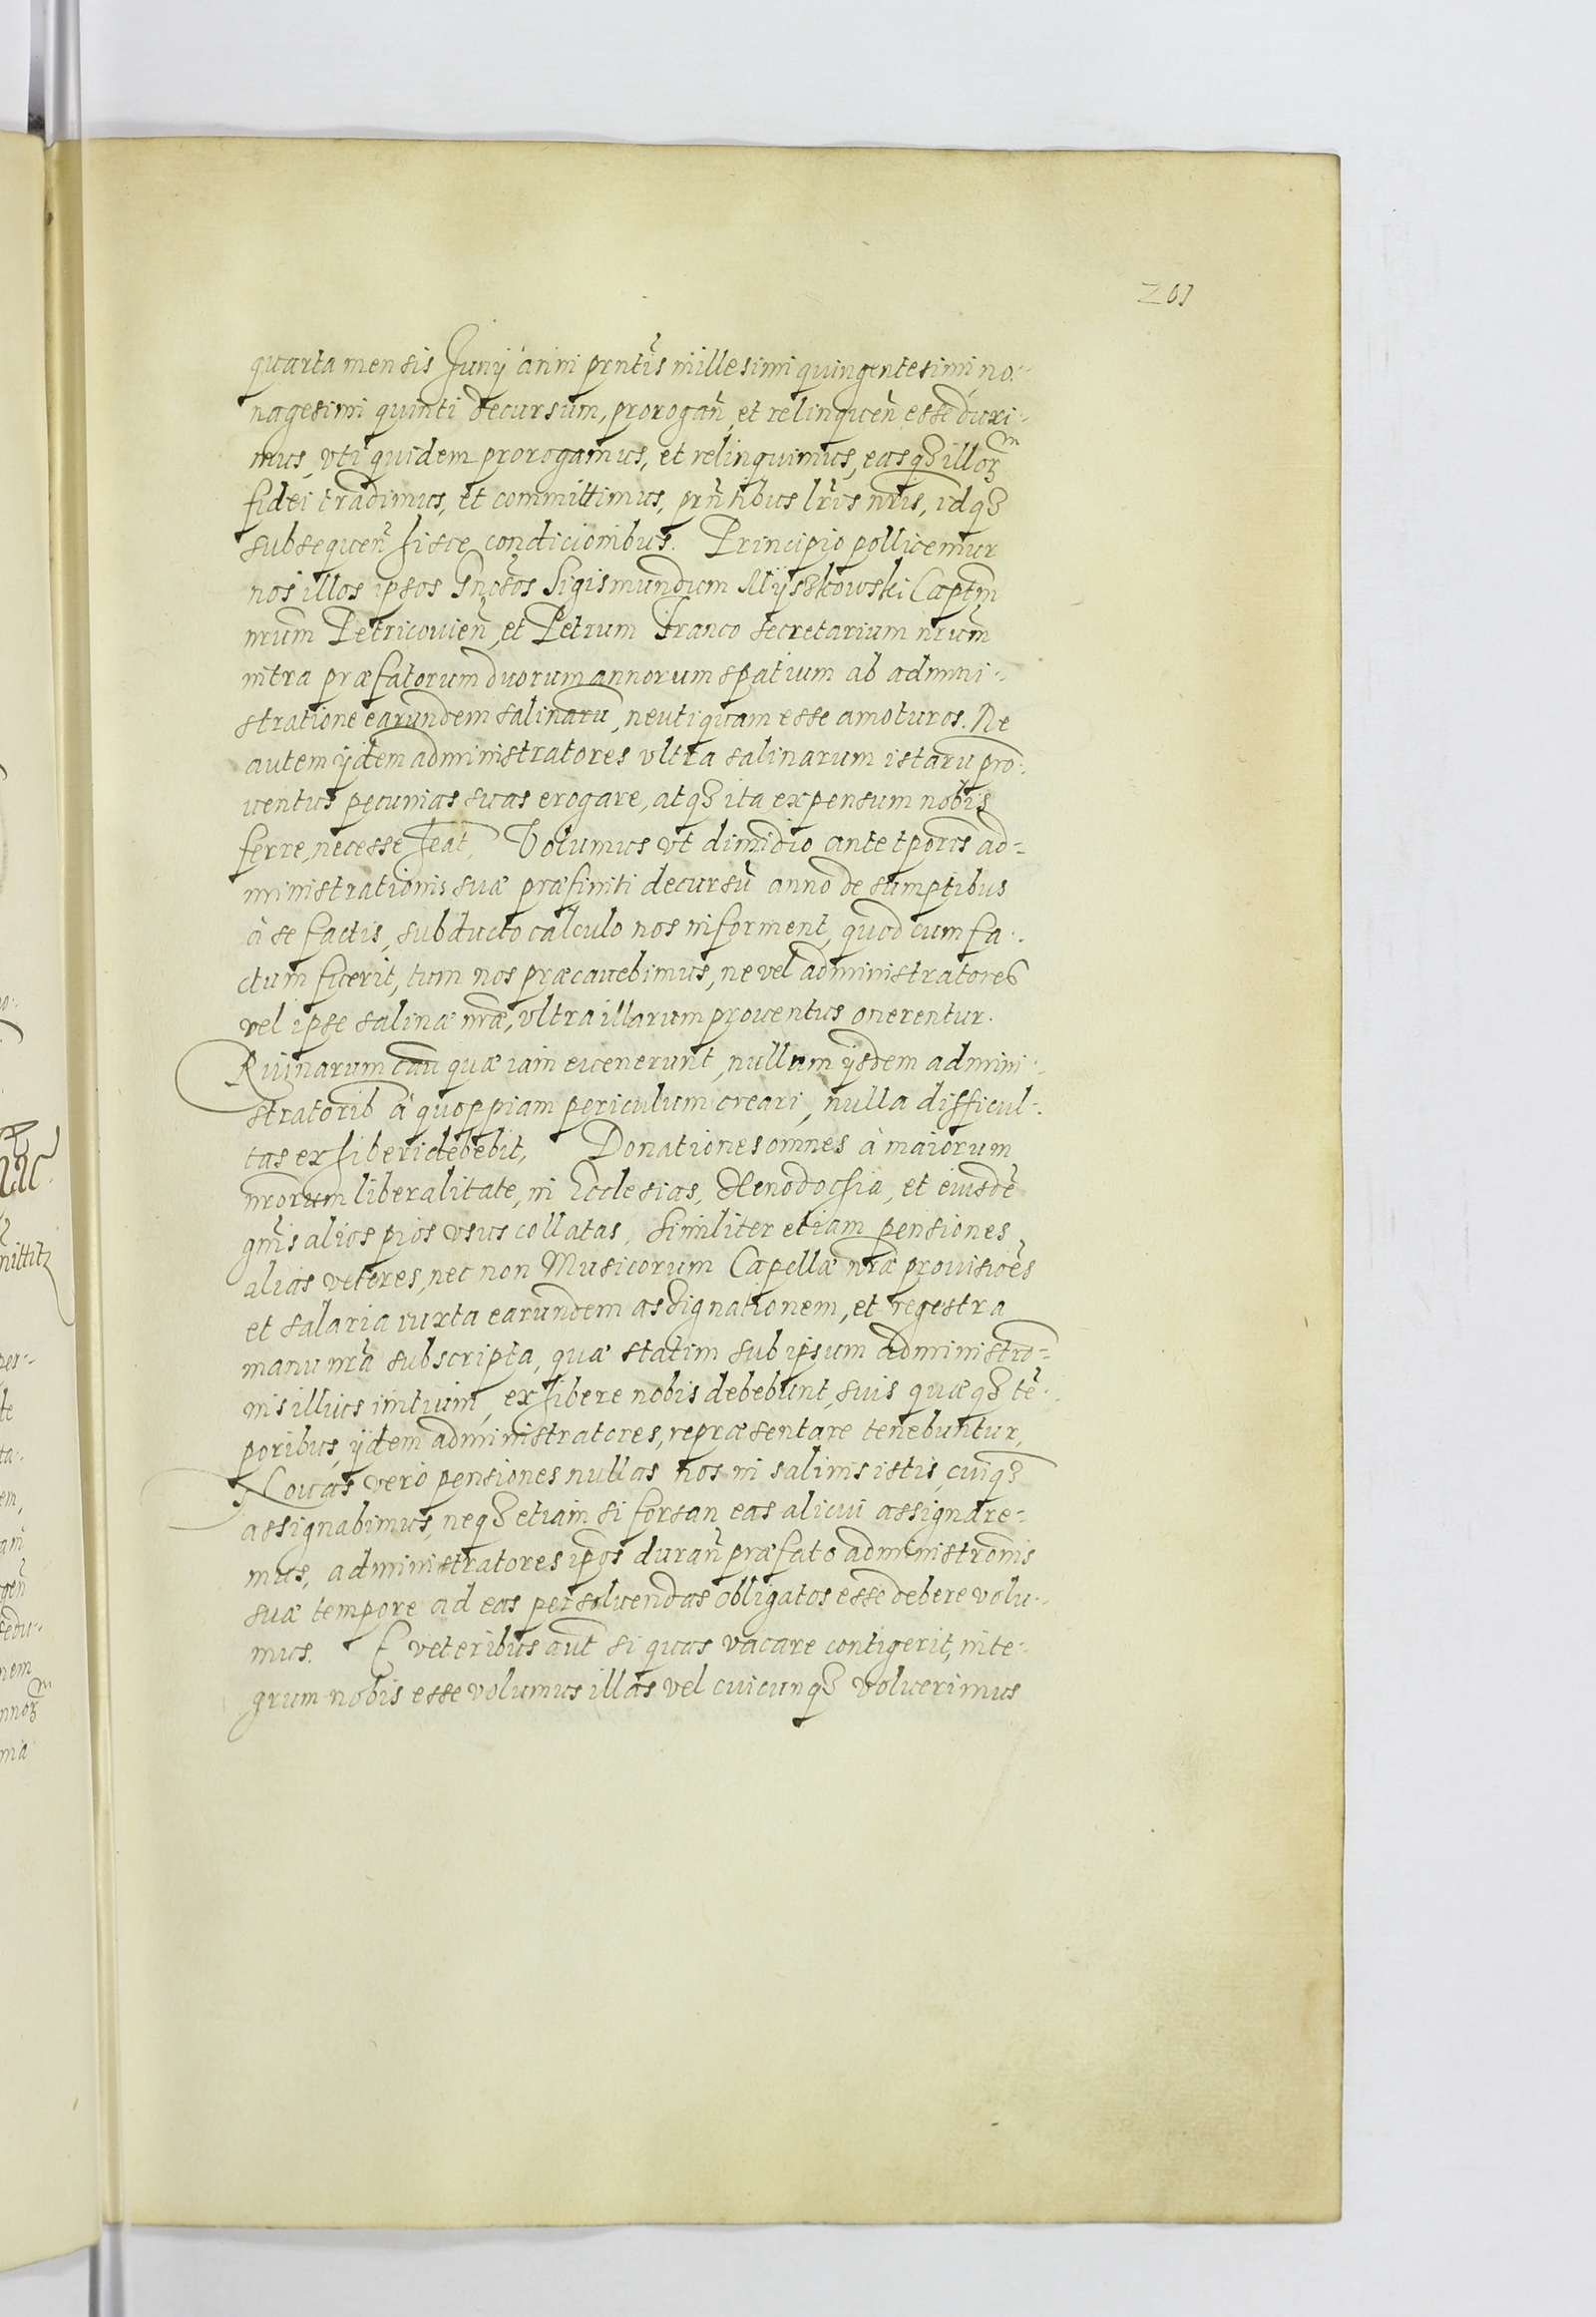 201
quarta mensis Junij anni prntis millesimi quingentesimi no-
nagesimi quinti decursum, prorogan̄ et relinquen̄ esse duxi-
mus, vti quidem prorogamus, et relinquimus, easqȝ illorȝ
fidei tradimus, et committimus, prn̄tibus lris nris, idqȝ
subsequen̄ hisce condicionibus. Principio pollicemur
nos illos ipsos Gnosos Sigismundum Mÿszkowski Captm
nrum Petricouien̄, et Petrum Franco secretarium nrum
intra præfatorum duorum annorum spatium ab admini-
stratione earundem salinarū, neutiquam esse amoturos. Ne
autem ijdem administratores vltra salinarum istarū pro-
uentus pecunias suas erogare, atqȝ ita expensum nobis
ferre, necesse heat, Volumus vt dimidio ante tporis ad-
ministrationis suæ præfiniti decursū anno de sumptibus
à se factis, subducto calculo nos informent, quod cum fa-
ctum fuerit, tum nos præcauebimus, ne vel administratores
vel ipse salinæ nræ, vltra illarum prouentus onerentur.
Ruinarum cau quæ iam euenerunt, nullum ijsdem admini-
stratorib à quoppiam periculum creari, nulla difficul-
tas exhiberi debebit, Donationes omnes à maiorum
nrorum liberalitate, in Ecclesias, Xenodochia, et eiusdē
gnis alios pios vsus collatas, Similiter etiam pensiones
alias veteres, nec non Musicorum Capellæ nræ prouisiōes
et salaria iuxta earundem assignationem, et regestra
manu nrā subscripta, quæ statim sub ipsum administro-
nis illius initium, exhibere nobis debebunt, suis quæqȝ tē-
poribus, ijdem administratores, repræsentare tenebuntur,
Nouas vero pensiones nullas nos in salinis istis, cuiqȝ
assignabimus, neqȝ etiam si forsan eas alicui assignare-
mus, administratores ipos duran̄ præfato administronis
suæ tempore ad eas persoluendas obligatos esse debere volu-
mus. E veteribus aut si quas vacare contigerit, inte-
grum nobis esse volumus illas vel cuicunqȝ voluerimus